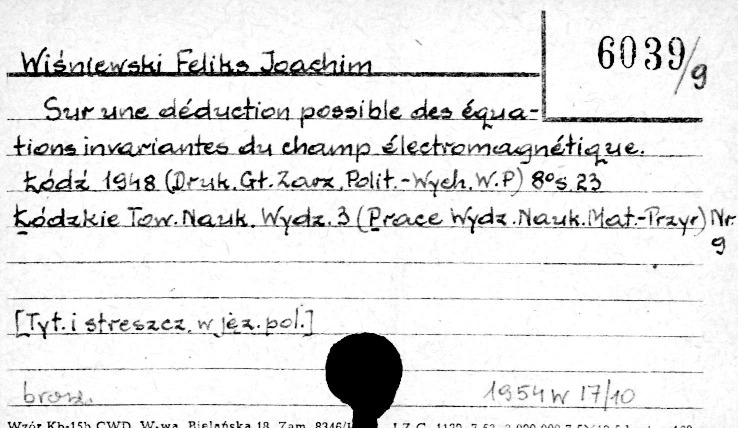 6039/9
Wiśniewski Feliks Joachim
Sur une déduction possible des équa-
tions invariantes du champ électromagnétique.
Łódź 1948 (Druk. Gł. Zarz. Polit.-Wych. W.P) 8° s. 23
Łódzkie Tow. Nauk. Wydz. 3 (Prace Wydz. Nauk. Mat.-Przyr) Nr.
9
[Tyt. i streszcz. w jęz. pol.]
brosz. 1954 W 17/10
Wzór Kb-15b CWD, W-wa, Bielańska 18, Zam. 8346/